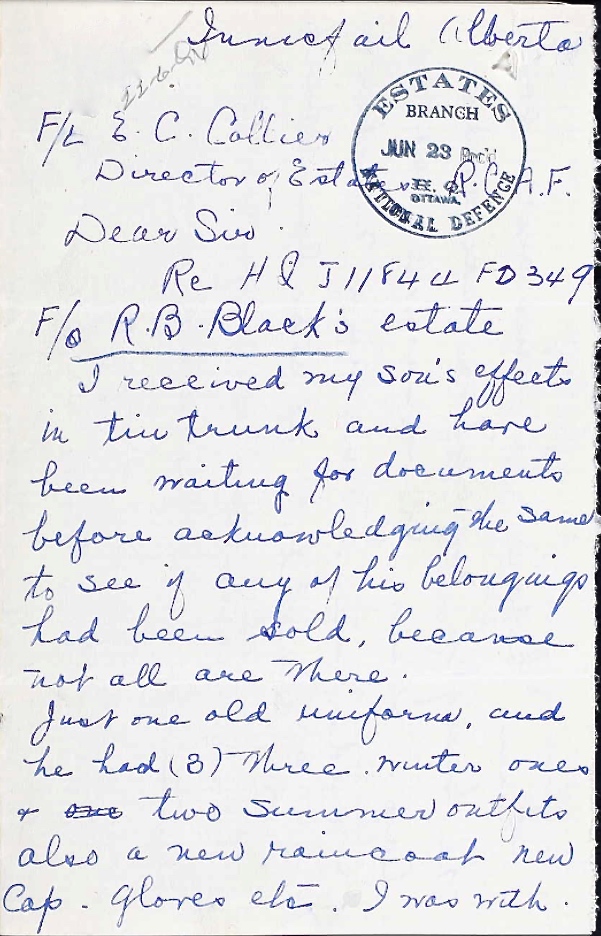 Innisfail Alberta
F/L E. C. Collier
Director of Estates R.C.A.F.
ESTATES
BRANCH
JUN 23 Rec'd
H.Q.
OTTAWA.
NATIONAL DEFENCE
Dear Sir.
Re H Q J11844 FD 349
F/O R.B. Black's estate
I received my son's effects
in tin trunk and have
been waiting for documents
before acknowledging the same
to see if any of his belongings
had been sold, because
not all are there.
Just one old uniform, and
he had (3) three winter ones
+ two summer outfits
also a new raincoat new
Cap. gloves etc. I was with.